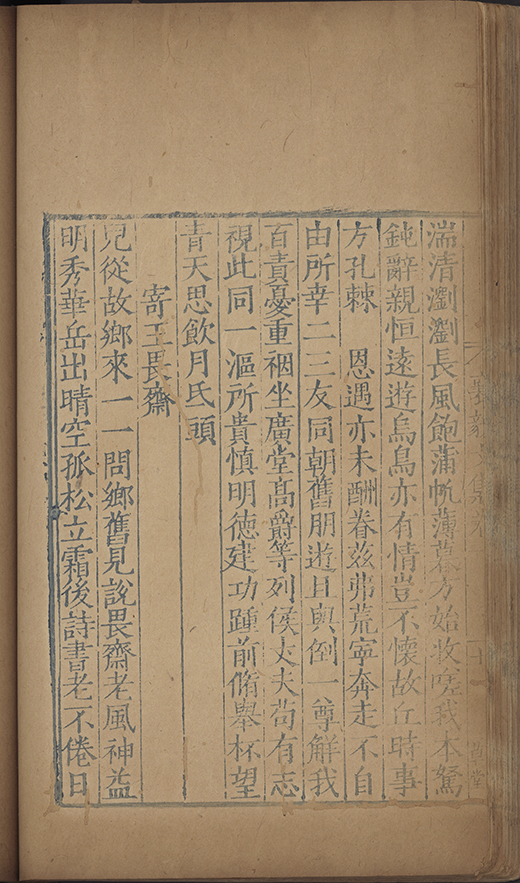 湍清瀏瀏長風飽蒲帆薄暮方始收嗟我本駑
鈍辭親恒遠遊烏鳥亦有情豈不懷故丘時事
方孔棘　恩遇亦未酬眷茲弗荒寧奔走不自
由所幸二三友同朝舊朋遊且與倒一尊解我
百責憂重裀坐廣堂高爵等列侯丈夫苟有志
視此同一漚所貴慎明德建功踵前脩舉杯望
青天思飲月氏頭
寄王畏齋
兒從故鄉來一一問鄉舊見說畏齋老風神益
明秀華岳出晴空孤松立霜後詩書老不倦日